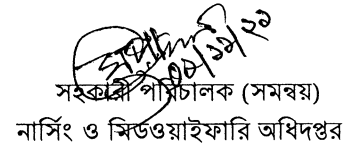 সহকারী পরিচালক (সমন্বয়)
নার্সিং ও মিডওয়াইফারি অধিদপ্তর